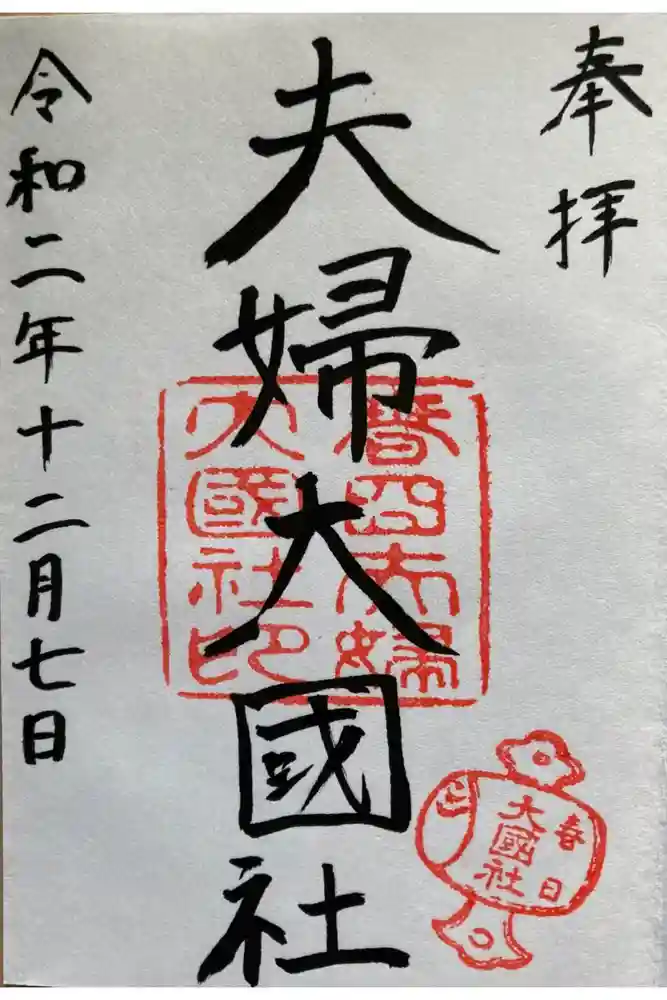 奉拝
夫婦大國社
春日夫婦
大國社印
春日
大國社
令和二年十二月七日